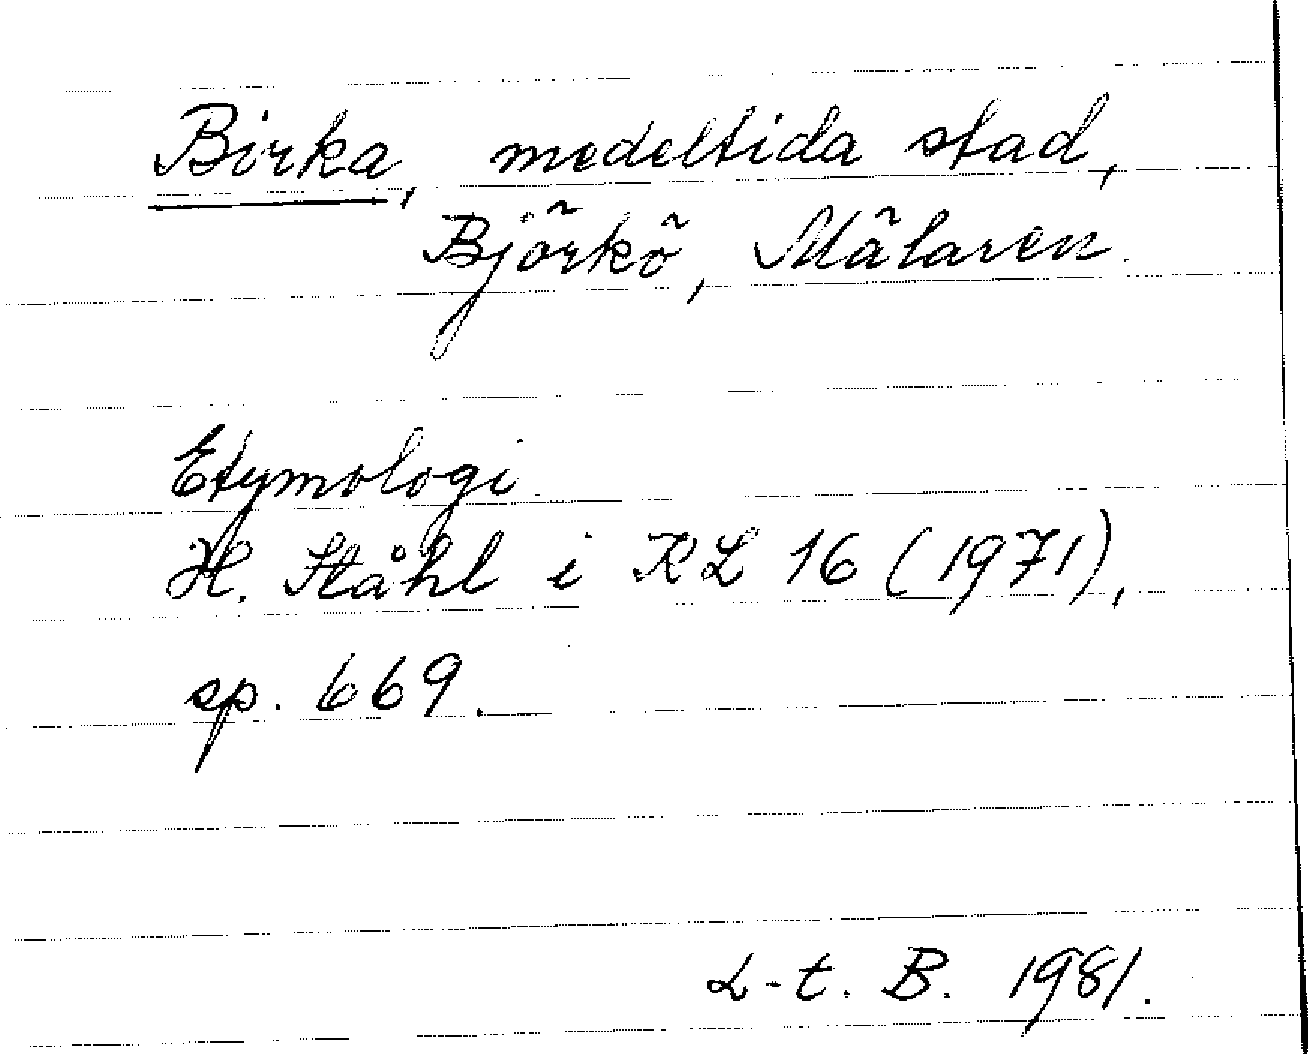 Birka, medeltida stad,
Björkö, Mälaren.
Etymologi
H. Ståhl i KL 16 (1971),
sp. 669.
L-t. B. 1981.